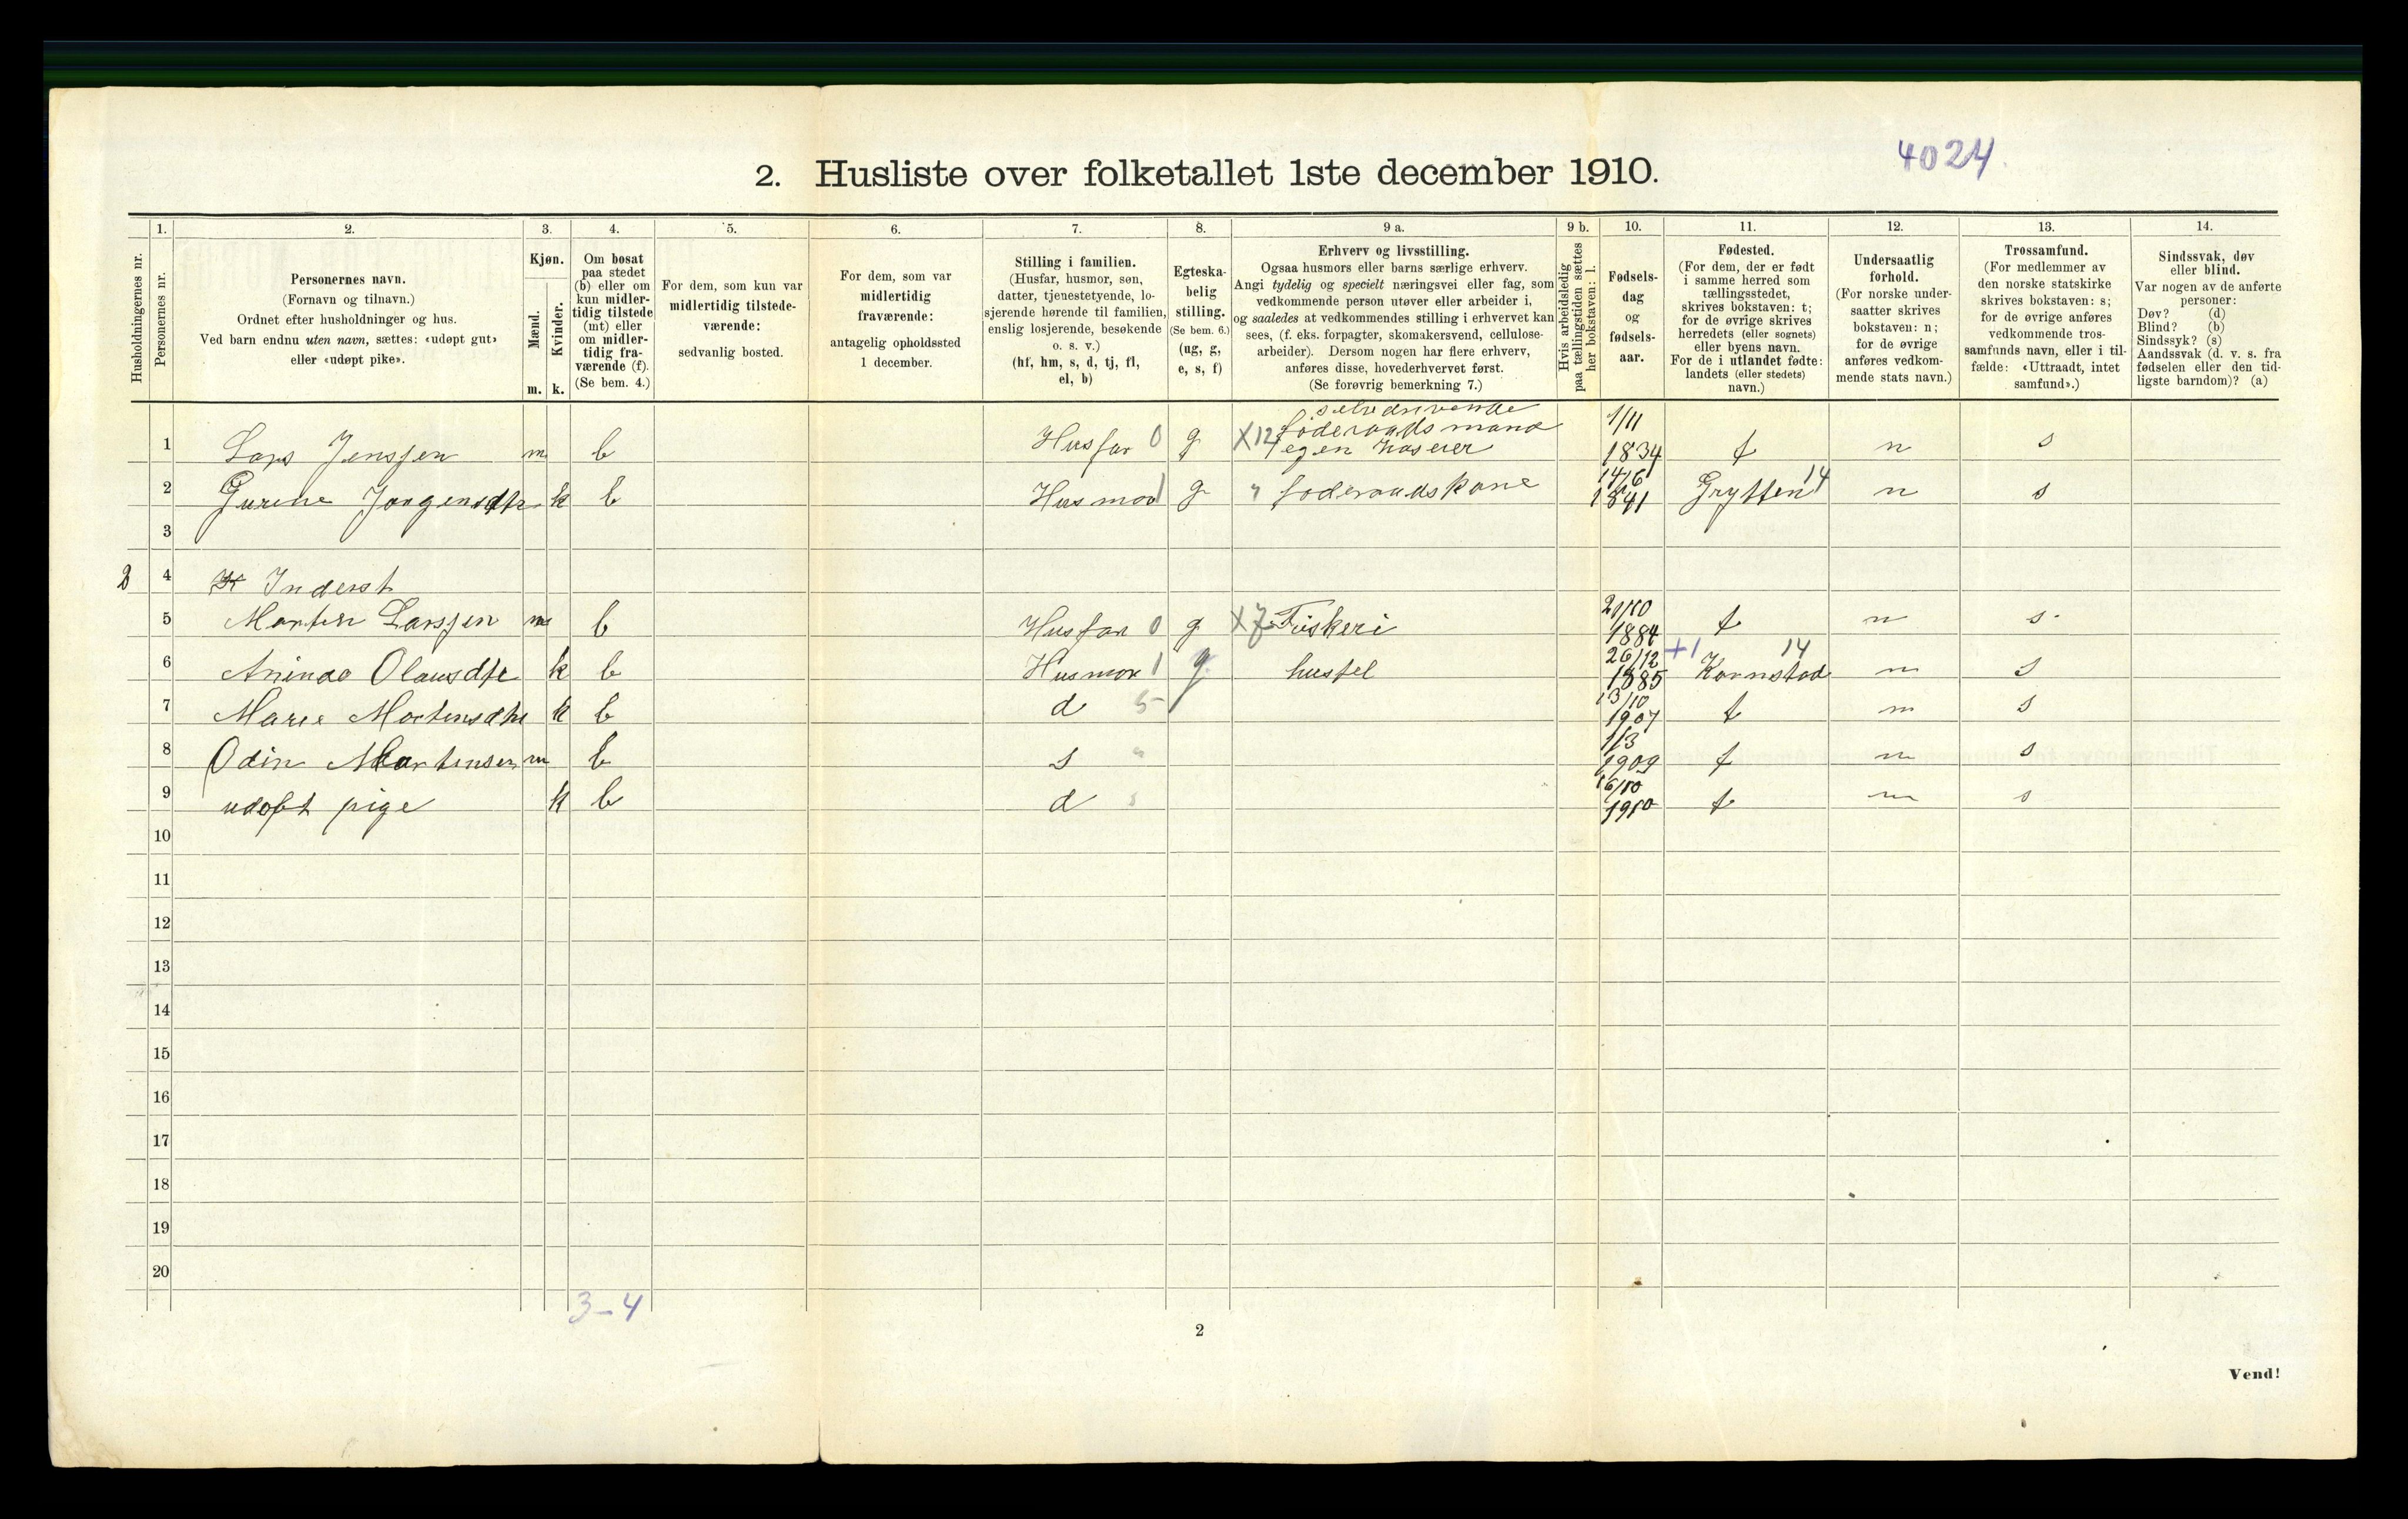 4024
2. Husliste over folketallet 1ste december 1910.
Husholdningernes nr.
1.
Personernes nr.
2.
Personernes navn.
(Fornavn og tilnavn.)
Ordnet efter husholdninger og hus.
Ved barn endnu uten navn, sættes: «udøpt gut»
eller «udøpt pike».
3.
Kjøn.
Mænd.
Kvinder.
m. k.
4.
Om bosat
paa stedet
(b) eller om
kun midler-
tidig tilstede
(mt) eller
om midler-
tidig fra-
værende (f).
(Se bem. 4.)
5.
For dem, som kun var
midlertidig tilstede-
værende:
sedvanlig bosted.
6.
For dem, som var
midlertidig
fraværende:
antagelig opholdssted
1 december.
7.
Stilling i familien.
(Husfar, husmor, søn,
datter, tjenestetyende, lo-
sjerende hørende til familien,
enslig losjerende, besøkende
o. s. v.)
(hf, hm, s, d, tj, fl,
el, b)
8.
Egteska-
belig
stilling.
(Se bem. 6.)
(ug, g,
e, s, f)
9 a.
Erhverv og livsstilling.
Ogsaa husmors eller barns særlige erhverv.
Angi tydelig og specielt næringsvei eller fag, som
vedkommende person utøver eller arbeider i,
og saaledes at vedkommendes stilling i erhvervet kan
sees, (f. eks. forpagter, skomakersvend, cellulose-
arbeider). Dersom nogen har flere erhverv,
anføres disse, hovederhvervet først.
(Se forøvrig bemerkning 7.)
9 b.
Hvis arbeidsledig
paa tællingstiden sættes
her bokstaven: l.
10.
Fødsels-
dag
og
fødsels-
aar.
11.
Fødested.
(For dem, der er født
i samme herred som
tællingsstedet,
skrives bokstaven: t;
for de øvrige skrives
herredets (eller sognets)
eller byens navn.
For de i utlandet fødte:
landets (eller stedets)
navn.)
12.
Undersaatlig
forhold.
(For norske under-
saatter skrives
bokstaven: n;
for de øvrige
anføres vedkom-
mende stats navn.)
13.
Trossamfund.
(For medlemmer av
den norske statskirke
skrives bokstaven: s;
for de øvrige anføres
vedkommende tros-
samfunds navn, eller i til-
fælde: «Uttraadt, intet
samfund».)
14.
Sindssvak, døv
eller blind.
Var nogen av de anførte
personer:
Døv? (d)
Blind? (b)
Sindssyk? (s)
Aandssvak (d. v. s. fra
fødselen eller den tid-
ligste barndom)? (a)
selvdrivende
1 Lars Jenssen m b Husfar 0 g X12 føderaadsmand egen haseier 1/11 1834 t n s
2 Gurine Jørgensdtr k b Husmor 1 g " føderaadskone 14/6 1841 Grytten 14 n s
3
2 4 Inderst
5 Morten Larssen m b Husfar 0 g X7 Fiskeri 21/10 1884 t n s
6 Anina Olausdtr k b Husmor 1 g hustel 26/12 1885 +1 Kornstad 14 n s
7 Marie Mortensdtr k b d 5 13/10 1907 t n s
8 Odin Mortensen m b s " 1/3 1909 t n s
9 udøbt pige k b d 16/10 1910 t n s
10
11
12
13
14
15
16
17
18
19
20
3-4
2
Vend!